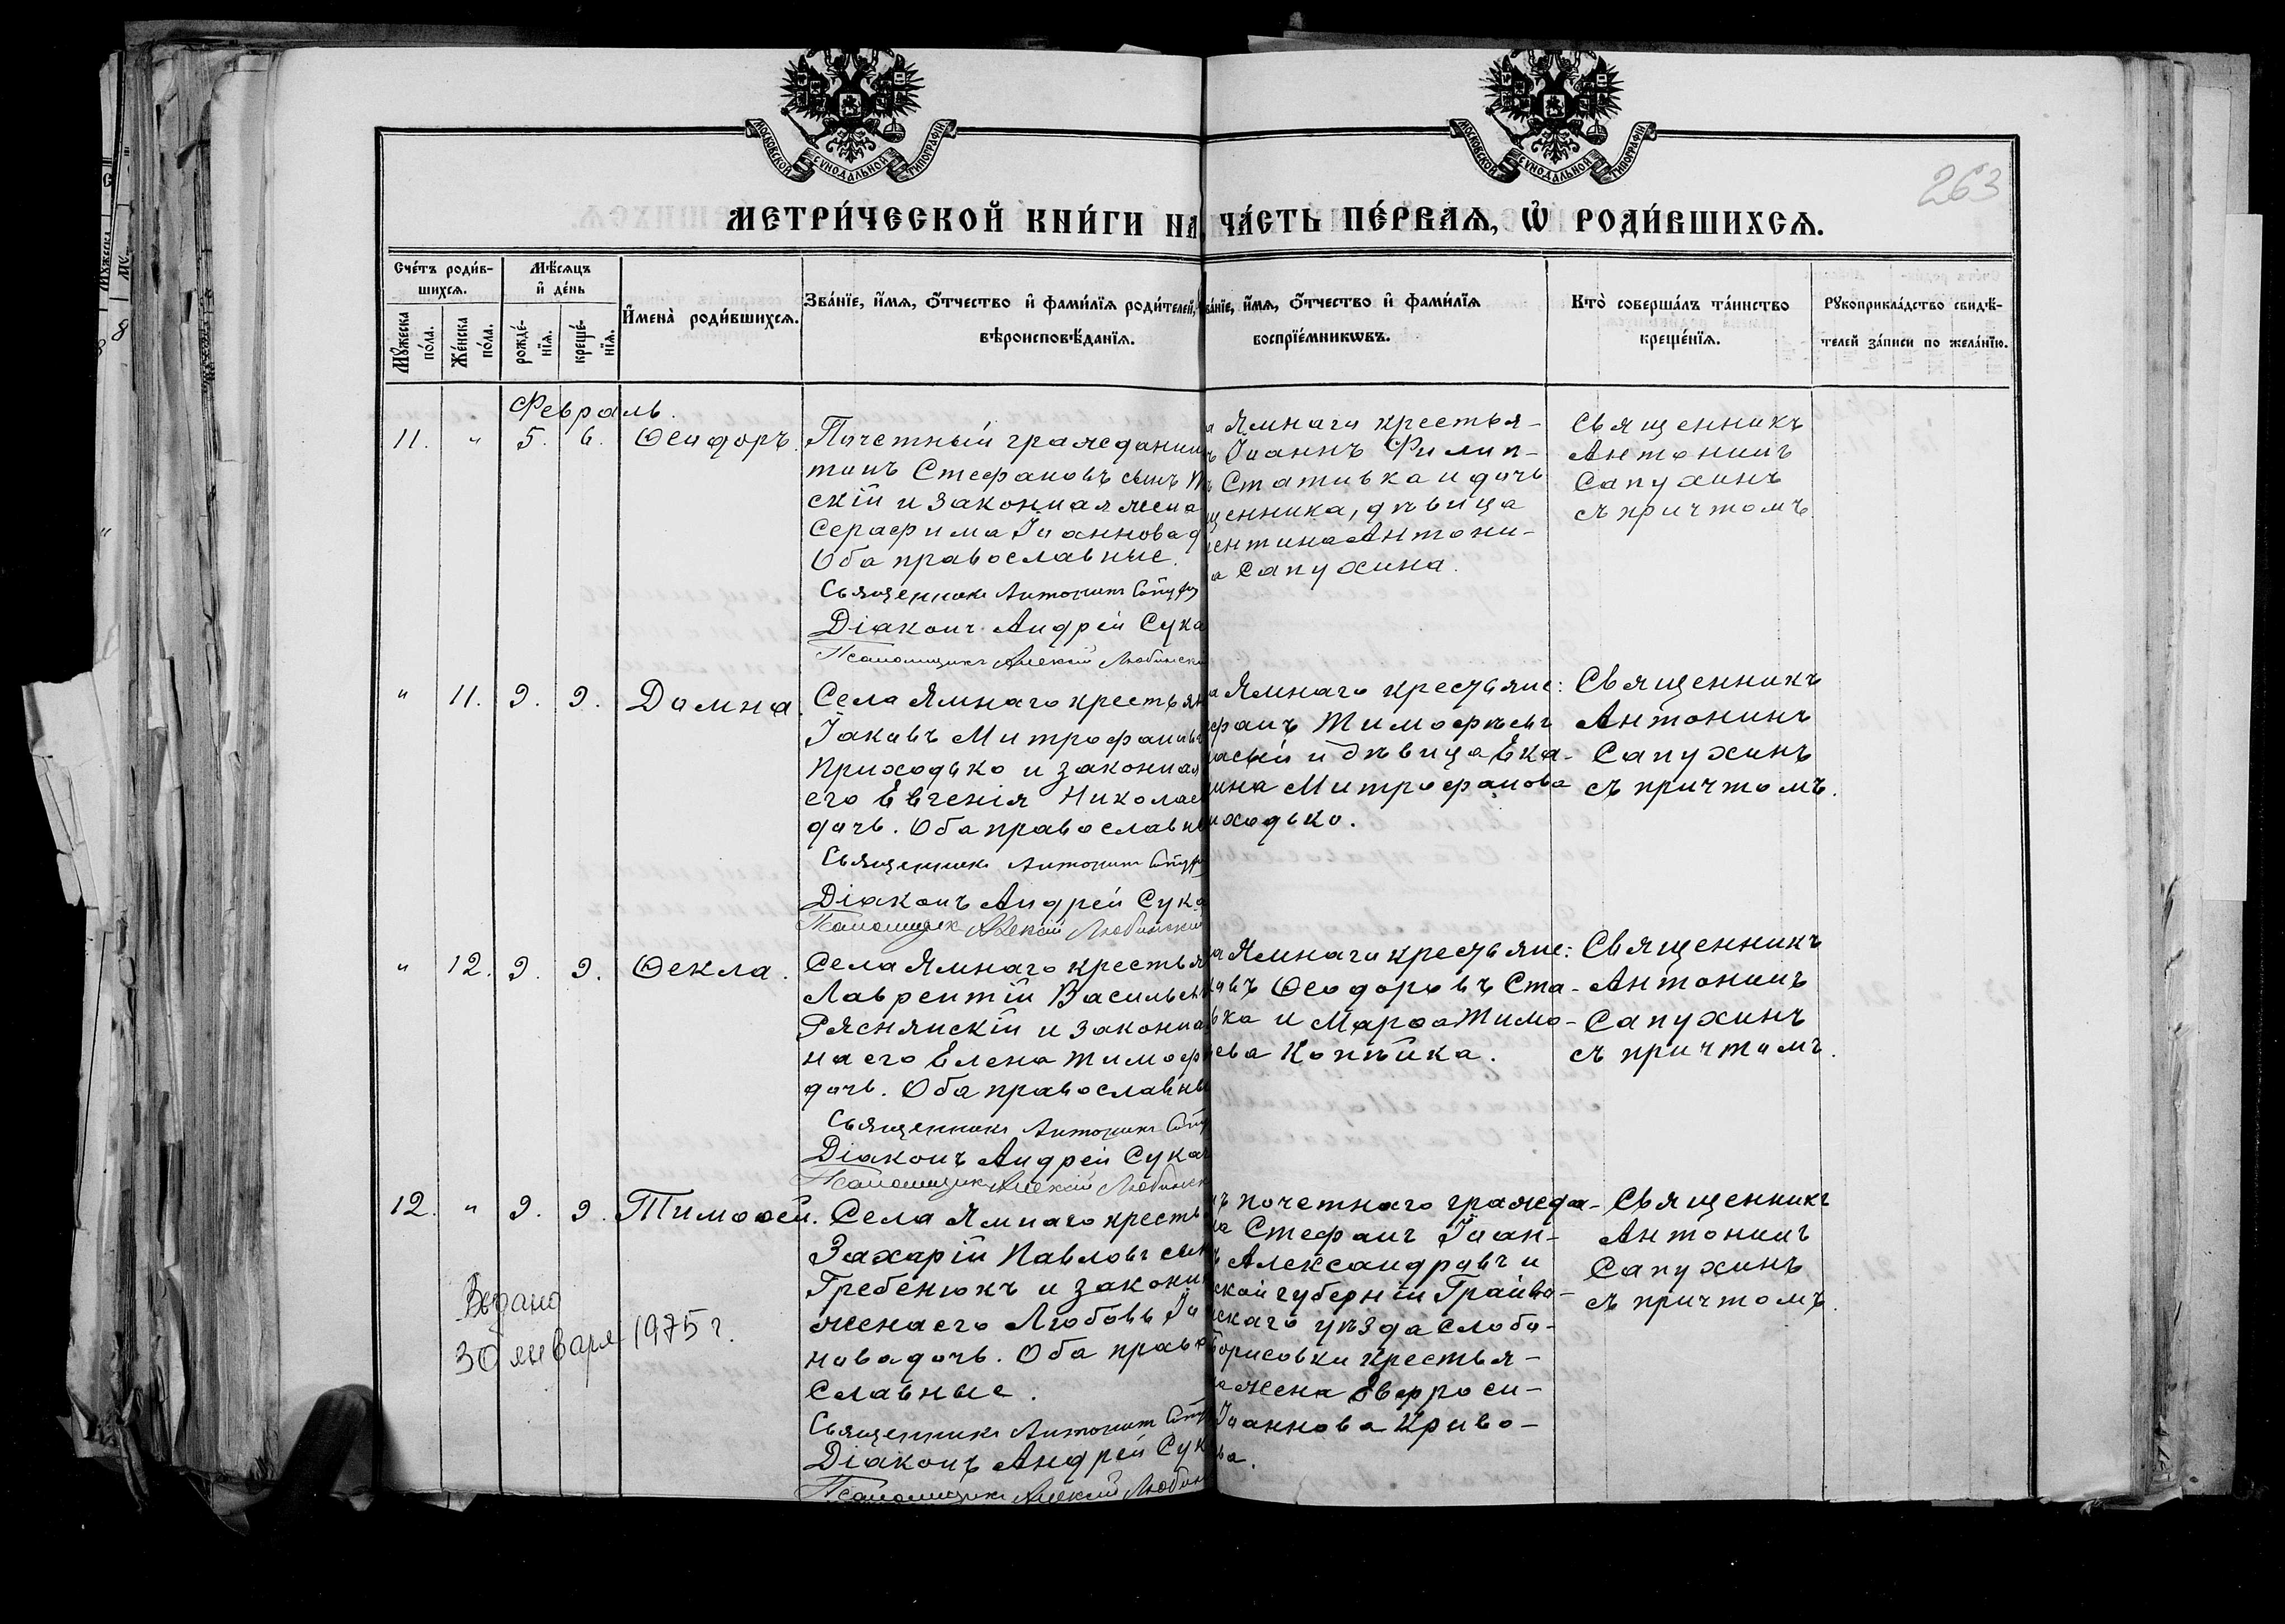 МОСКОВСКОЙ СѴНОДАЛЬНОЙ ТИПОГРАФІИ
МОСКОВСКОЙ СѴНОДАЛЬНОЙ ТИПОГРАФІИ
263
МЕТРИ́ЧЕСКОЙ КНИ́ГИ НА
ЧА́СТЬ ПЕ́РВАѦ, Ѿ РОДИ́ВШИХСѦ.
Сче́тъ роди́в-
шихсѧ.
Мꙋ́жеска по́ла.
Же́нска по́ла.
Мѣ́сѧцъ
и҆ де́нь
рожде́-
нїѧ.
креще́-
нїѧ.
И҆мена̀ роди́вшихсѧ.
Зва́нїе, и҆́мѧ, ѻ҆́тчество и҆ фами́лїѧ роди́телей,
вѣроисповѣ́данїѧ.
ва́нїе, и҆́мѧ, ѻ҆́тчество и҆ фами́лїѧ
воспрїе́мникѡвъ.
Кто̀ соверша́лъ та́инство
креще́нїѧ.
Рꙋкоприкла́дство свидѣ́-
телей за́писи по жела́нїю.
Февраль.
11. " 5. 6. Ѳеодоръ.
Почетный гражданин
тинъ Стефановъ сынъ
скій и законная жена
Серафима Іоаннова д
Оба православные.
Священникъ Антонинъ Сапух
Діаконъ Андрей Сука
Псаломщикъ Алексій Любинскі
а Ямнаго крестья-
ъ Іоаннъ Филип-
ъ Стативка и дочь
щенника, дѣвица
ентина Антони-
а Сапухина.
Священникъ
Антонинъ
Сапухинъ
съ причтомъ.
" 11. 9. 9. Домна.
Села Ямнаго крестьян
Іаковъ Митрофановъ
Приходько и законная
его Евгенія Николае
дочь. Оба православны
Священникъ Антонинъ Сапух
Діаконъ Андрей Сука
Псаломщикъ Алексій Любинскій
а Ямнаго крестьяне:
фанъ Тимофѣевъ
асый и дѣвица Ека-
ина Митрофанова
иходько.
Священникъ
Антонинъ
Сапухинъ
съ причтомъ.
" 12. 9. 9. Ѳекла.
Села Ямнаго крестья
Лаврентій Васильевъ
Ряснянскій и законна
на его Елена Тимоф
дочь. Оба православны
Священникъ Антонинъ Сапу
Діаконъ Андрей Сукач
Псаломщикъ Алексій Любинск
а Ямнаго крестьяне:
ковъ Ѳеодоровъ Ста-
вка и Марѳа Тимо-
ева Копѣйка.
Священникъ
Антонинъ
Сапухинъ
съ причтомъ.
12. " 9. 9. Тимоѳей.
Села Ямнаго кресть
Захарій Павловъ сын
Гребенюкъ и законн
жена его Любовь Іо
нова дочь. Оба право
славные.
Священникъ Антонинъ Сапу
Діаконъ Андрей Сук
Псаломщикъ Алексій Любин
ъ почетнаго гражда-
на Стефанъ Іоан-
ъ Александровъ и
ской губерніи Грайво-
скаго уѣзда слобо-
Борисовки крестья-
жена Евфроси-
Іоаннова Криво-
ва.
Священникъ
Антонинъ
Сапухинъ
съ причтомъ.
Выдано
30 января 1975 г.